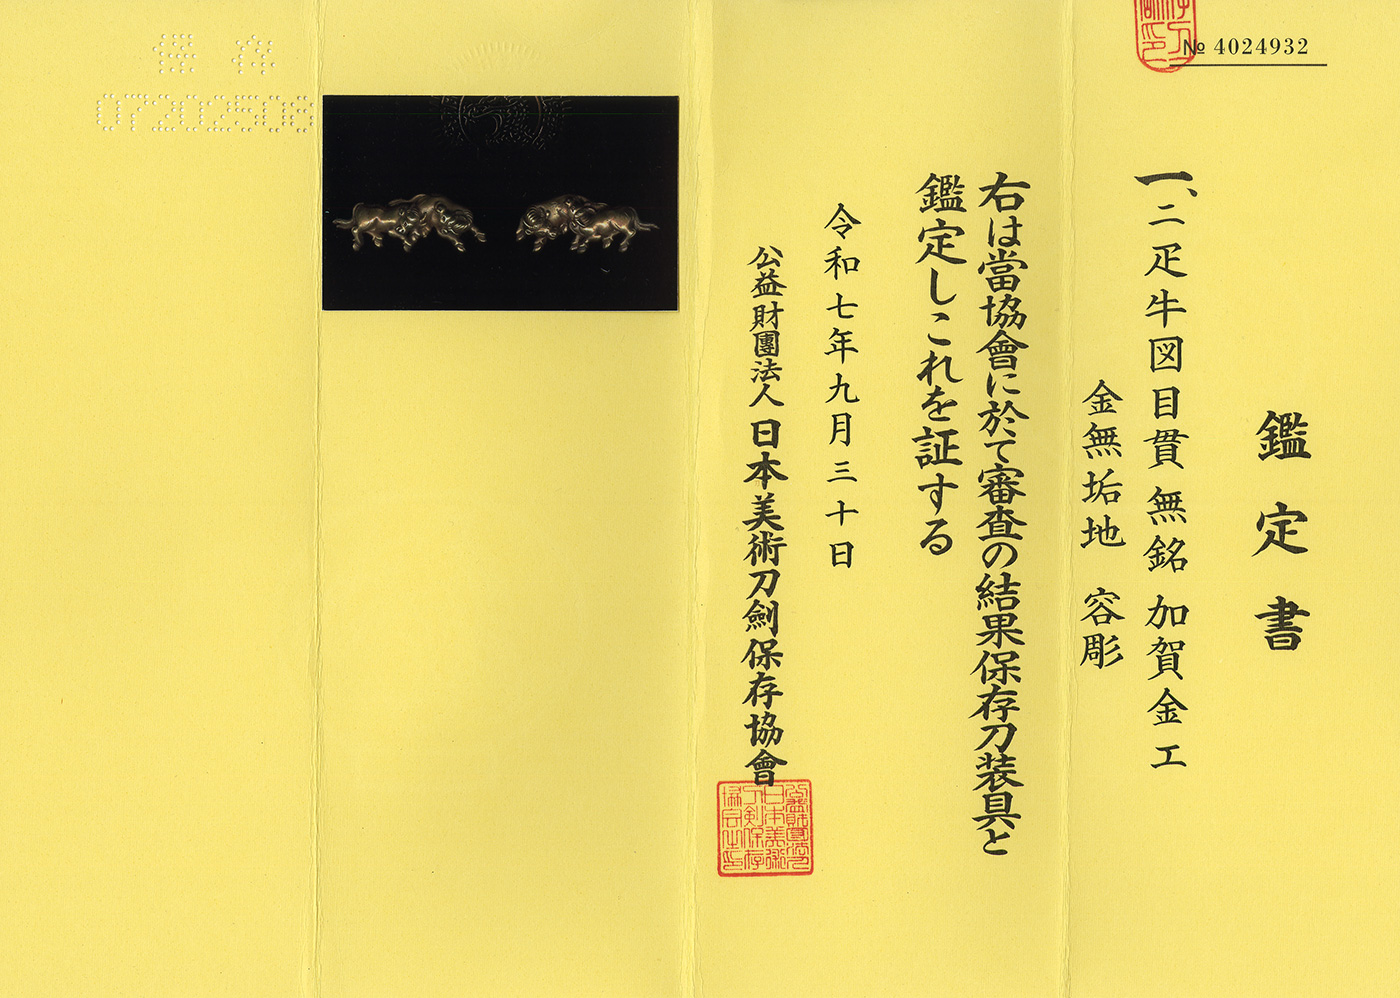 № 4024932
鑑定書
一、二疋牛図目貫 無銘 加賀金工
金無垢地 容彫
右は當協會に於て審査の結果保存刀装具と
鑑定しこれを証する
令和七年九月三十日
公益財團法人 日本美術刀劍保存協會
保存
07202508